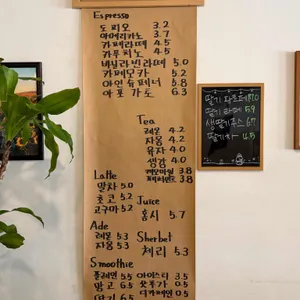 Espresso
도피오 3.2
아메리카노 3.7
카페라떼 4.5
카푸치노 4.5
바닐라빈라떼 5.0
카페모카 5.2
아인슈페너 5.8
아포가토 6.3
Tea
레몬 4.2
자몽 4.2
유자 4.0
생강 4.0
캐모마일 3.8
페퍼민트 3.8
Latte
말차 5.0
초코 5.2
고구마 5.2
Juice
홍시 5.7
Ade
레몬 5.3
자몽 5.3
Sherbet
체리 5.3
Smoothie
플레인 5.5
망고 6.5
딸기 6.5
아이스티 3.5
샷추가 0.5
디카페인 0.5
딸기라떼 5.9
생딸기주스 6.7
딸기차 4.5